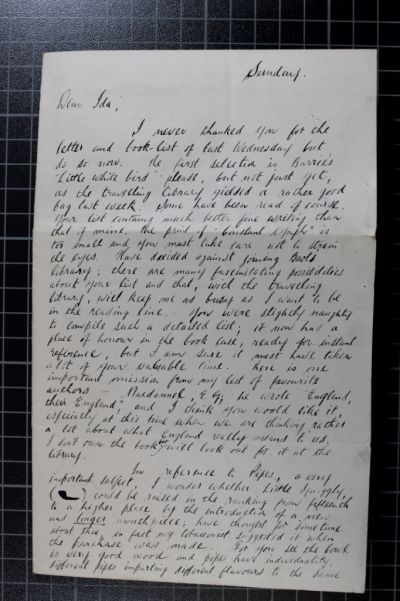 Sunday.
Dear Ida,
I never thanked you for the
letter and book-list of last Wednesday but
do so now. The first selection is Barrie's
"Little white bird" please, but not just yet,
as the travelling library yielded a rather good
bag last week. Some have been read of course.
Your list contains much better fine writing than
that of mine. The print of "Constant Nymph" is
too small and you must take care not to strain
the eyes. Have decided against joining Boot's
library; there are many fascinating possibilities
about your list and that, with the travelling
library, will keep me as busy as I want to be
in the reading line. You were slightly naughty
to compile such a detailed list; it now has a
place of honour in the book case, ready for instant
reference, but I am sure it must have taken
a lot of your valuable time. Here is one
important omission from my list of favourite
authors — Macdonnel, A.G; he wrote "England,
their England", and I think you would like it
especially at this time when we are thinking rather
a lot about what England really means to us,
I don't own the book, will look out for it at the
library.
In reference to Pipes, a very
important subject, I wonder whether little
( ) could be raised in the ranking from fifteenth
to a higher place by the introduction of a new
and longer mouthpiece; have thought for some time
about this, in fact my tobacconist suggested it when
the purchase was made. For you see the bowl
is very good wood and pipes have individuality,
different pipes imparting different flavours to the same